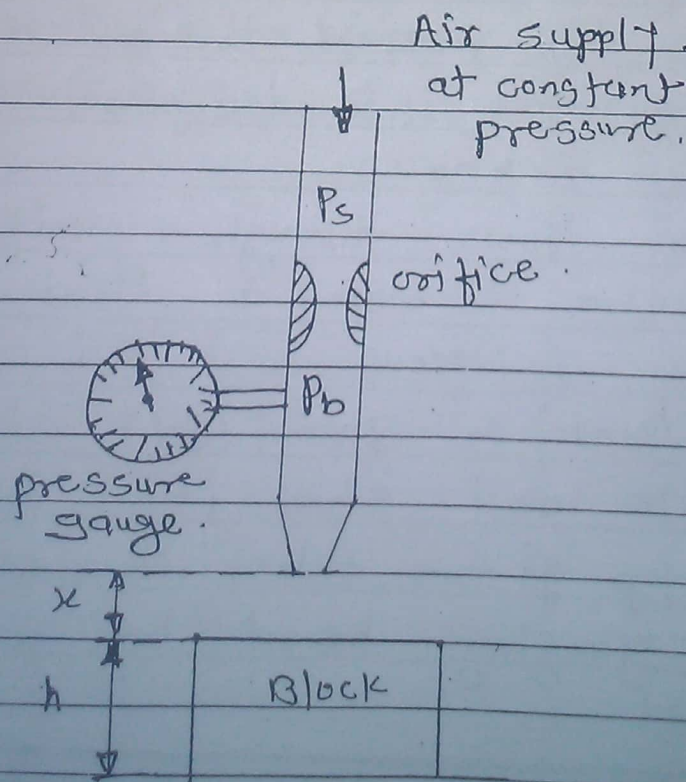 Air supply.
at constant
pressure.
Ps
orifice.
Pb
pressure
gauge.
x
h
Block